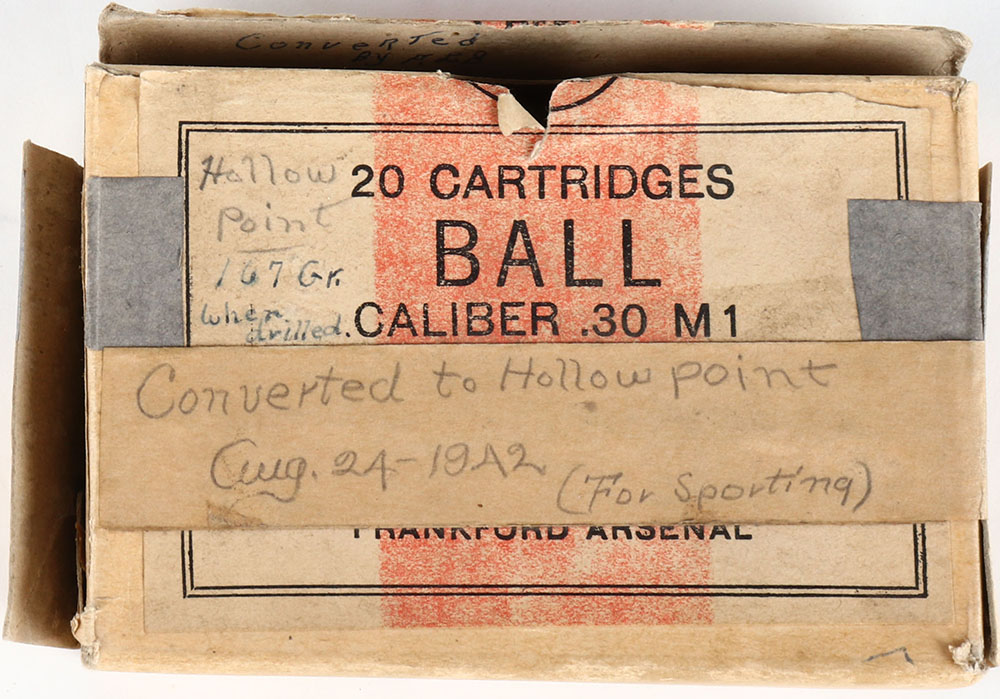 Converted
BY
Hollow
Point
167 Gr.
when
drilled.
20 CARTRIDGES
BALL
CALIBER .30 M1
Converted to Hollow point
Aug. 24-1942
(For Sporting)
FRANKFORD ARSENAL